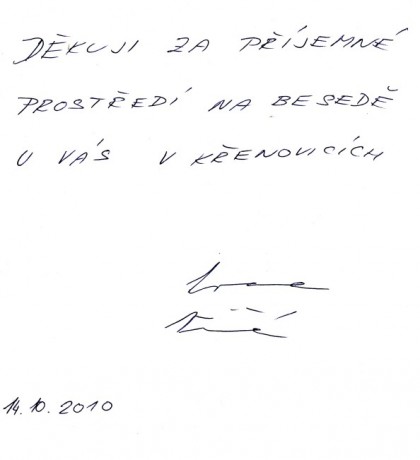 DĚKUJI ZA PŘÍJEMNÉ
PROSTŘEDÍ NA BESEDĚ
U VÁS V KŘENOVICÍCH
14.10.2010